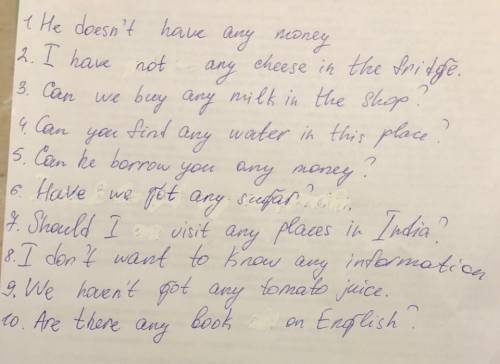 1. He doesn't have any money
2. I have not any cheese in the fridge.
3. Can we buy any milk in the shop?
4. Can you find any water in this place?
5. Can he borrow you any money?
6. Have we got any sugar?
7. Should I visit any places in India?
8. I don't want to know any information
9. We haven't got any tomato juice.
10. Are there any book on English?